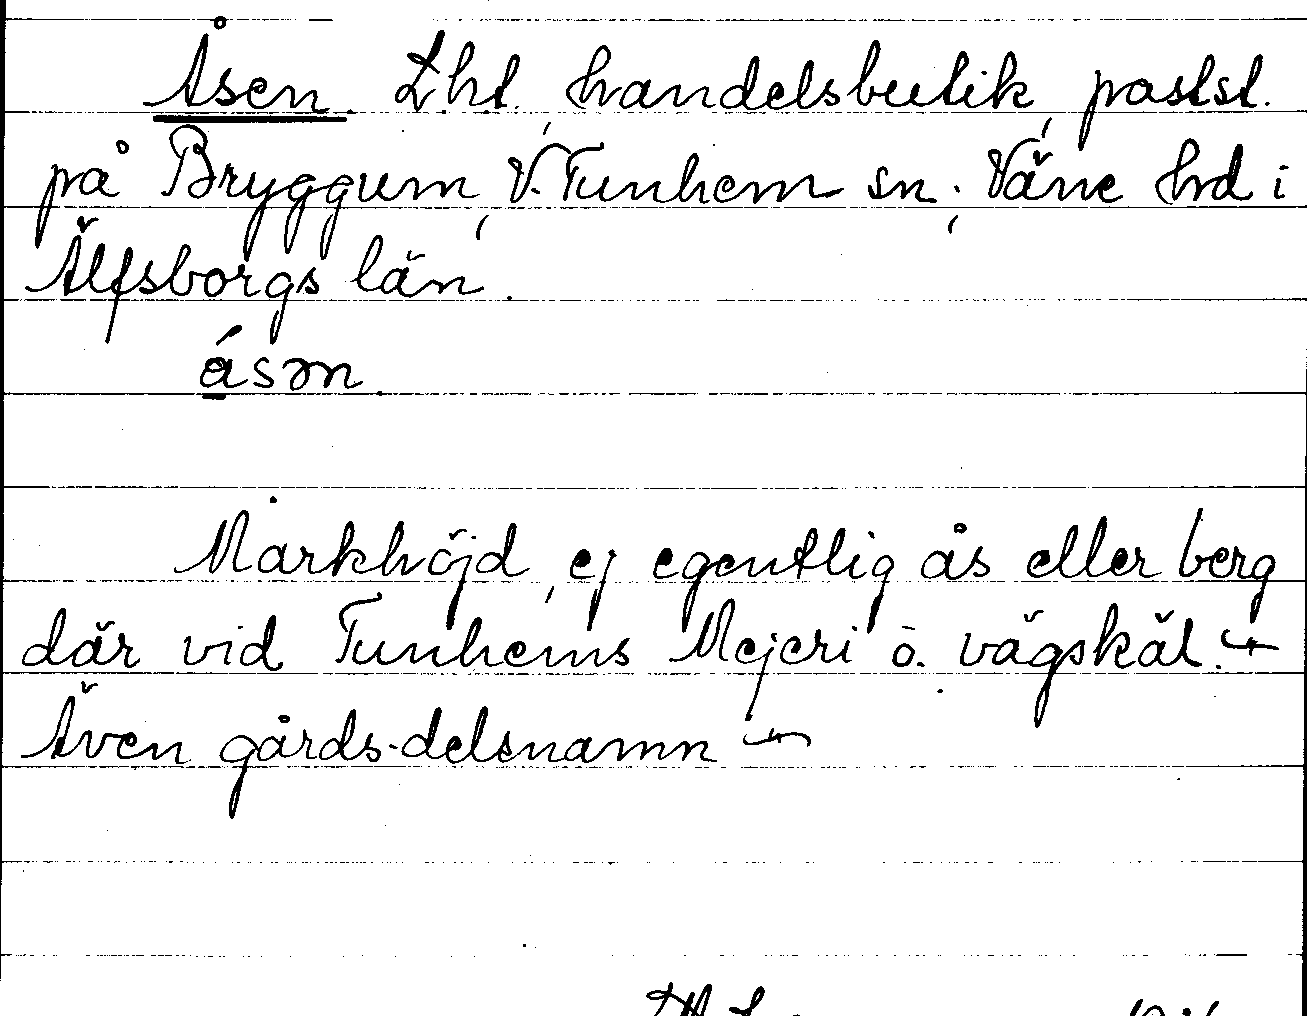 Åsen. Lht. handelsbutik, postst.
på Bryggum, V. Tunhem sn, Väne hrd i
Älfsborgs län.
ásən.
Markhöjd, ej egentlig ås eller berg
där vid Tunhems Mejeri o. vägskäl.
Även gårds-delsnamn